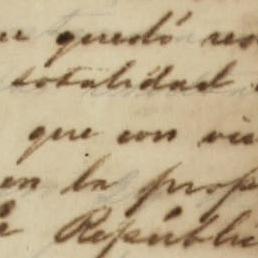 quedó
totalidad
que con
en la prop
Repúblic